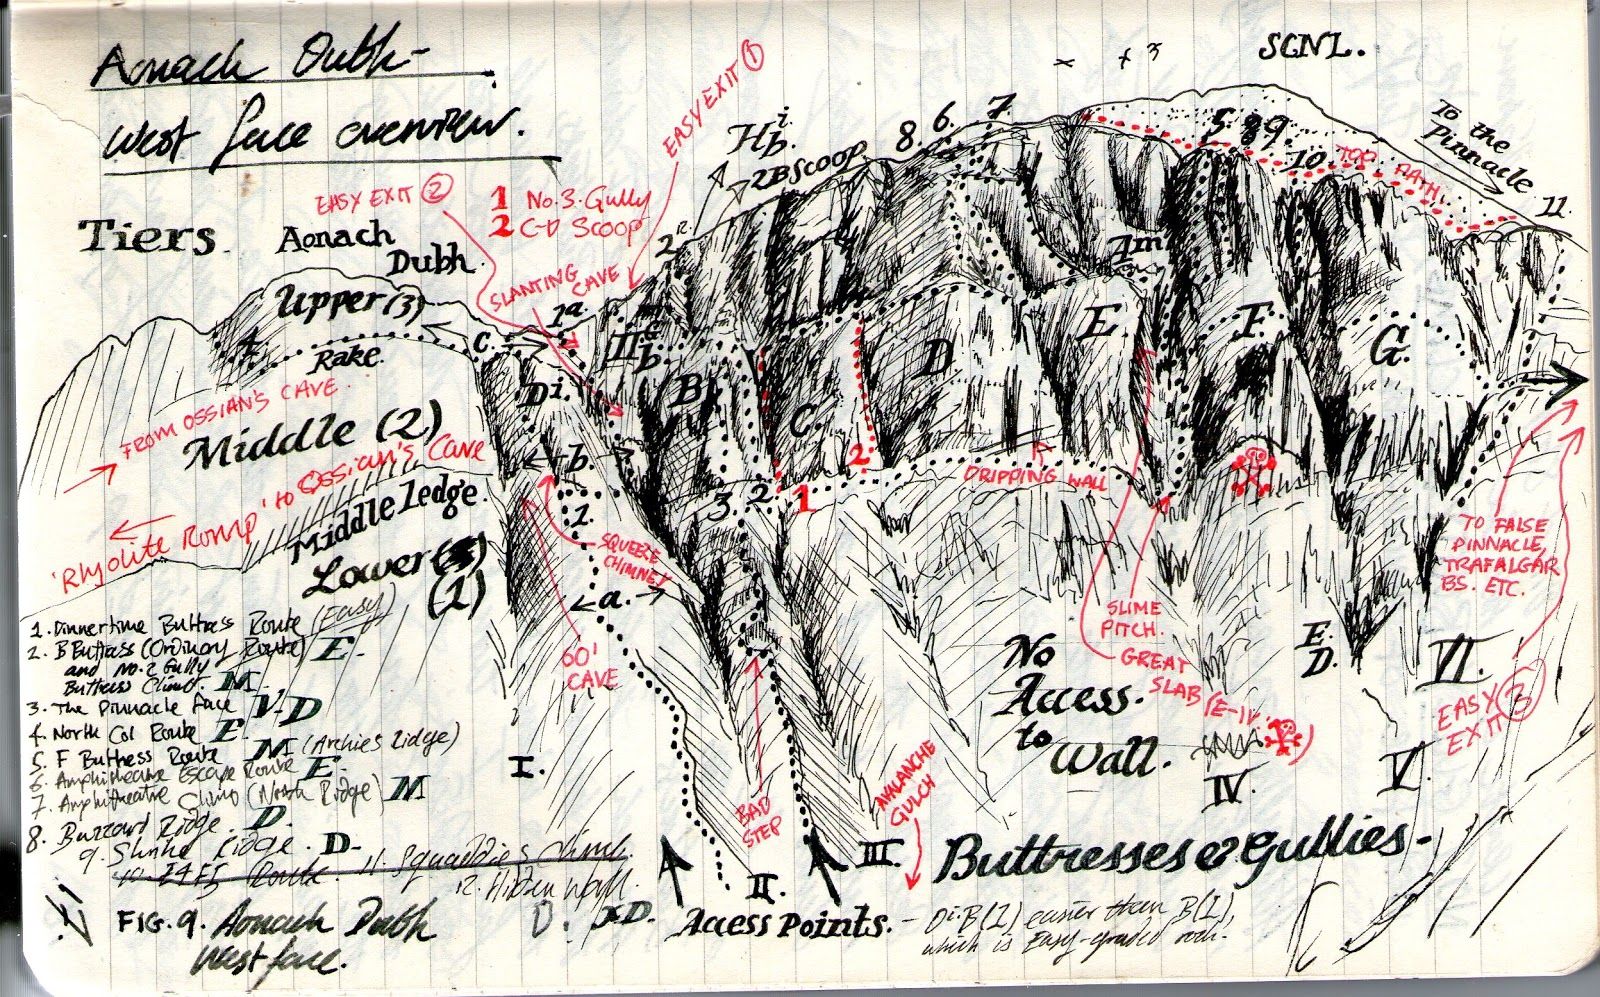 Aonach Dubh -
West face overview.
SGNL.
To the
Pinnacle
EASY EXIT 1
EASY EXIT 2
1 No. 3. Gully
2 C-D Scoop
SLANTING
CAVE
2B Scoop
8. 6. 7
5 8 9.
10.
TOP
PATH
11.
Tiers.
Aonach
Dubh.
Upper (3)
Rake.
4
C.
1a
2
II
G
b
Di.
B
C.
D
E.
F.
G.
FROM OSSIAN'S CAVE
Middle (2)
'Rhyolite Romp' to Ossian's Cave
Middle ledge.
Lower
(1)
b.
1.
a.
3. 2.
1
2
DRIPPING WALL
SQUEEZE
CHIMNEY
60'
CAVE
SLIME
PITCH.
GREAT
SLAB (E-IV.
TO FALSE
PINNACLE,
TRAFALGAR
BS. ETC.
EASY
EXIT 3
No
Access
to
Wall.
E.
D.
BAD
STEP
AVALANCHE
GULCH
I.
II.
III.
IV.
V.
VI.
1. Dinnertime Buttress Route (Easy)
2. B Buttress (Ordinary Route) E.
and No. 2 Gully
Buttress Climb. M
3. The Pinnacle Face V-D
4. North Col Route E.
5. F Buttress Route M (Archies Ridge)
6. Amphitheatre Escape Route E.
7. Amphitheatre Climb (North Ridge) M
8. Buzzard Ridge. D.
9. Shrike Ridge. D.
Route. 11. Squaddies Climb.
12. Hidden Wall.
D.
FIG. 9. Aonach Dubh
West face.
Access Points. - Di. B (1) easier than B (1),
which is Easy-graded rock.
Buttresses & Gullies -